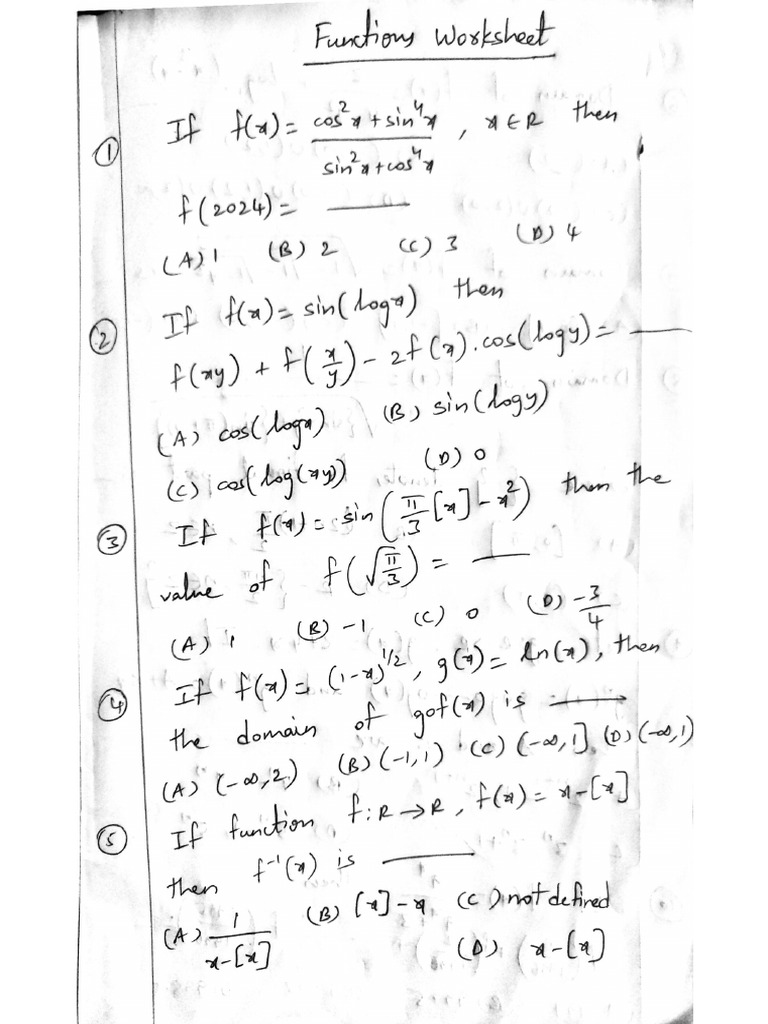 Functions Worksheet
① If f(x) = (cos²x + sin⁴x)/(sin²x + cos⁴x) , x ∈ R then
f(2024) = ____
(A) 1 (B) 2 (C) 3 (D) 4
② If f(x) = sin(logx) then
f(xy) + f(x/y) - 2f(x).cos(logy) = ____
(A) cos(logx) (B) sin(logy)
(C) cos(log(xy)) (D) 0
③ If f(x) = sin(π/3 [x] - x²) then the
value of f(√(π/3)) = ____
(A) 1 (B) -1 (C) 0 (D) -3/4
④ If f(x) = (1-x)^1/2, g(x) = ln(x), then
the domain of gof(x) is ____
(A) (-∞, 2) (B) (-1, 1) (C) (-∞, 1] (D) (-∞, 1)
⑤ If function f: R → R, f(x) = x-[x]
then f⁻¹(x) is ____
(A) 1/(x-[x]) (B) [x]-x (C) not defined
(D) x-[x]